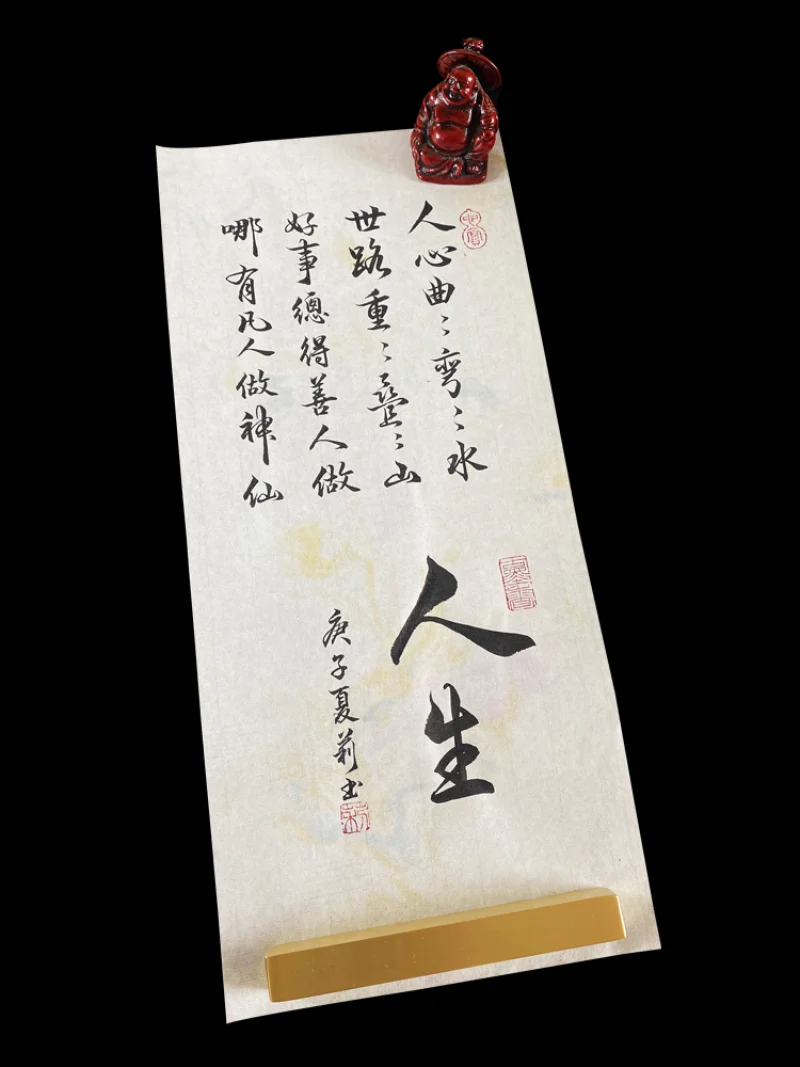 人心曲〻彎〻水
世路重〻疊〻山
好事總得善人做
哪有凡人做神仙
人生
庚子夏莉书